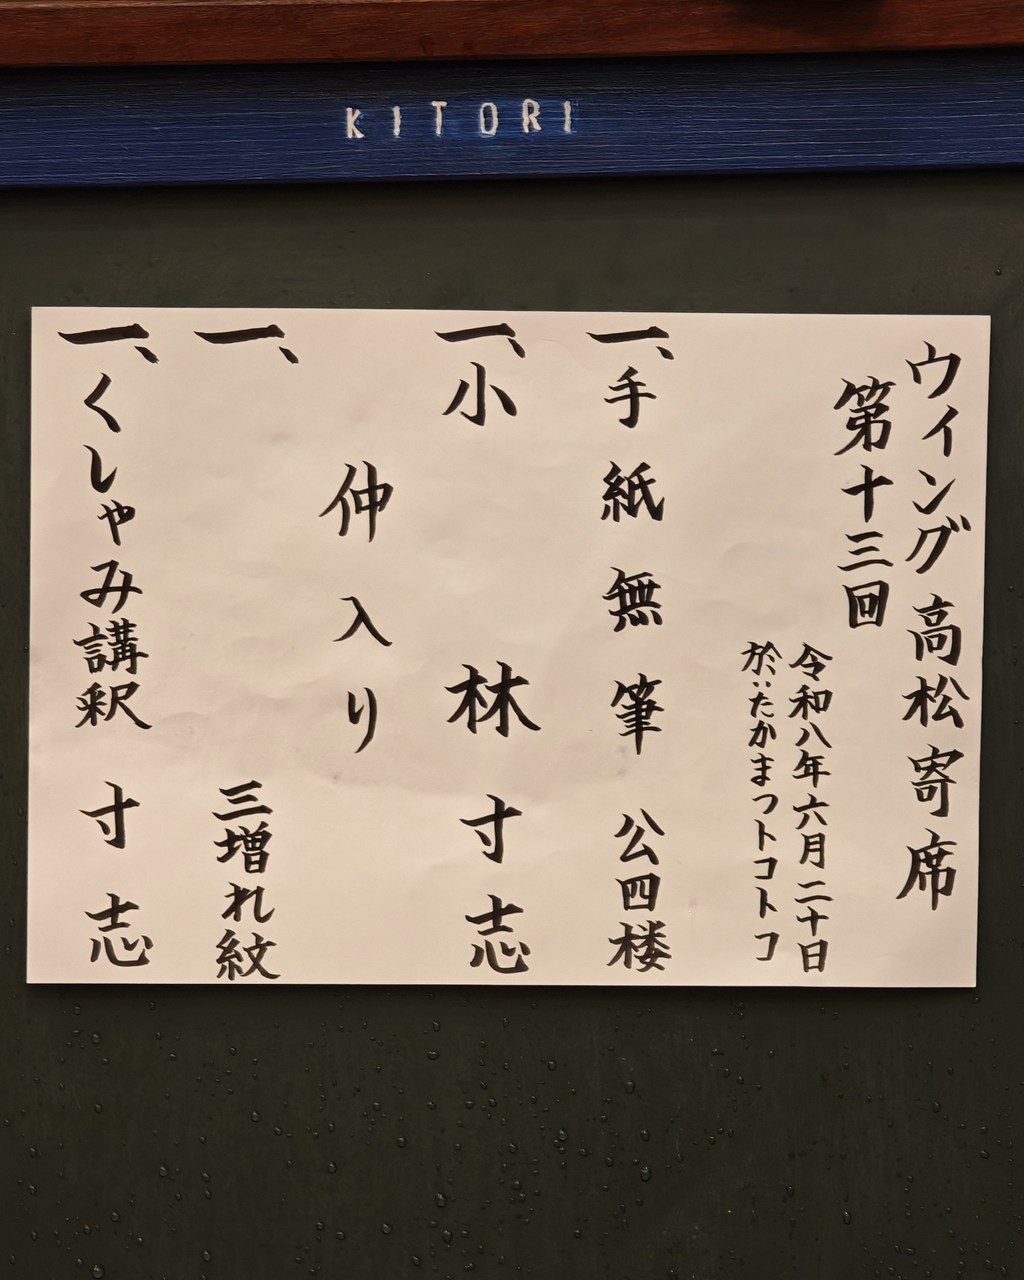 KITORI
ウイング高松寄席
第十三回
令和八年六月二十日
於:たかまつトコトコ
一、手紙無筆 公四楼
一、小林 寸志
仲入り
一、 三増れ紋
一、くしゃみ講釈 寸志